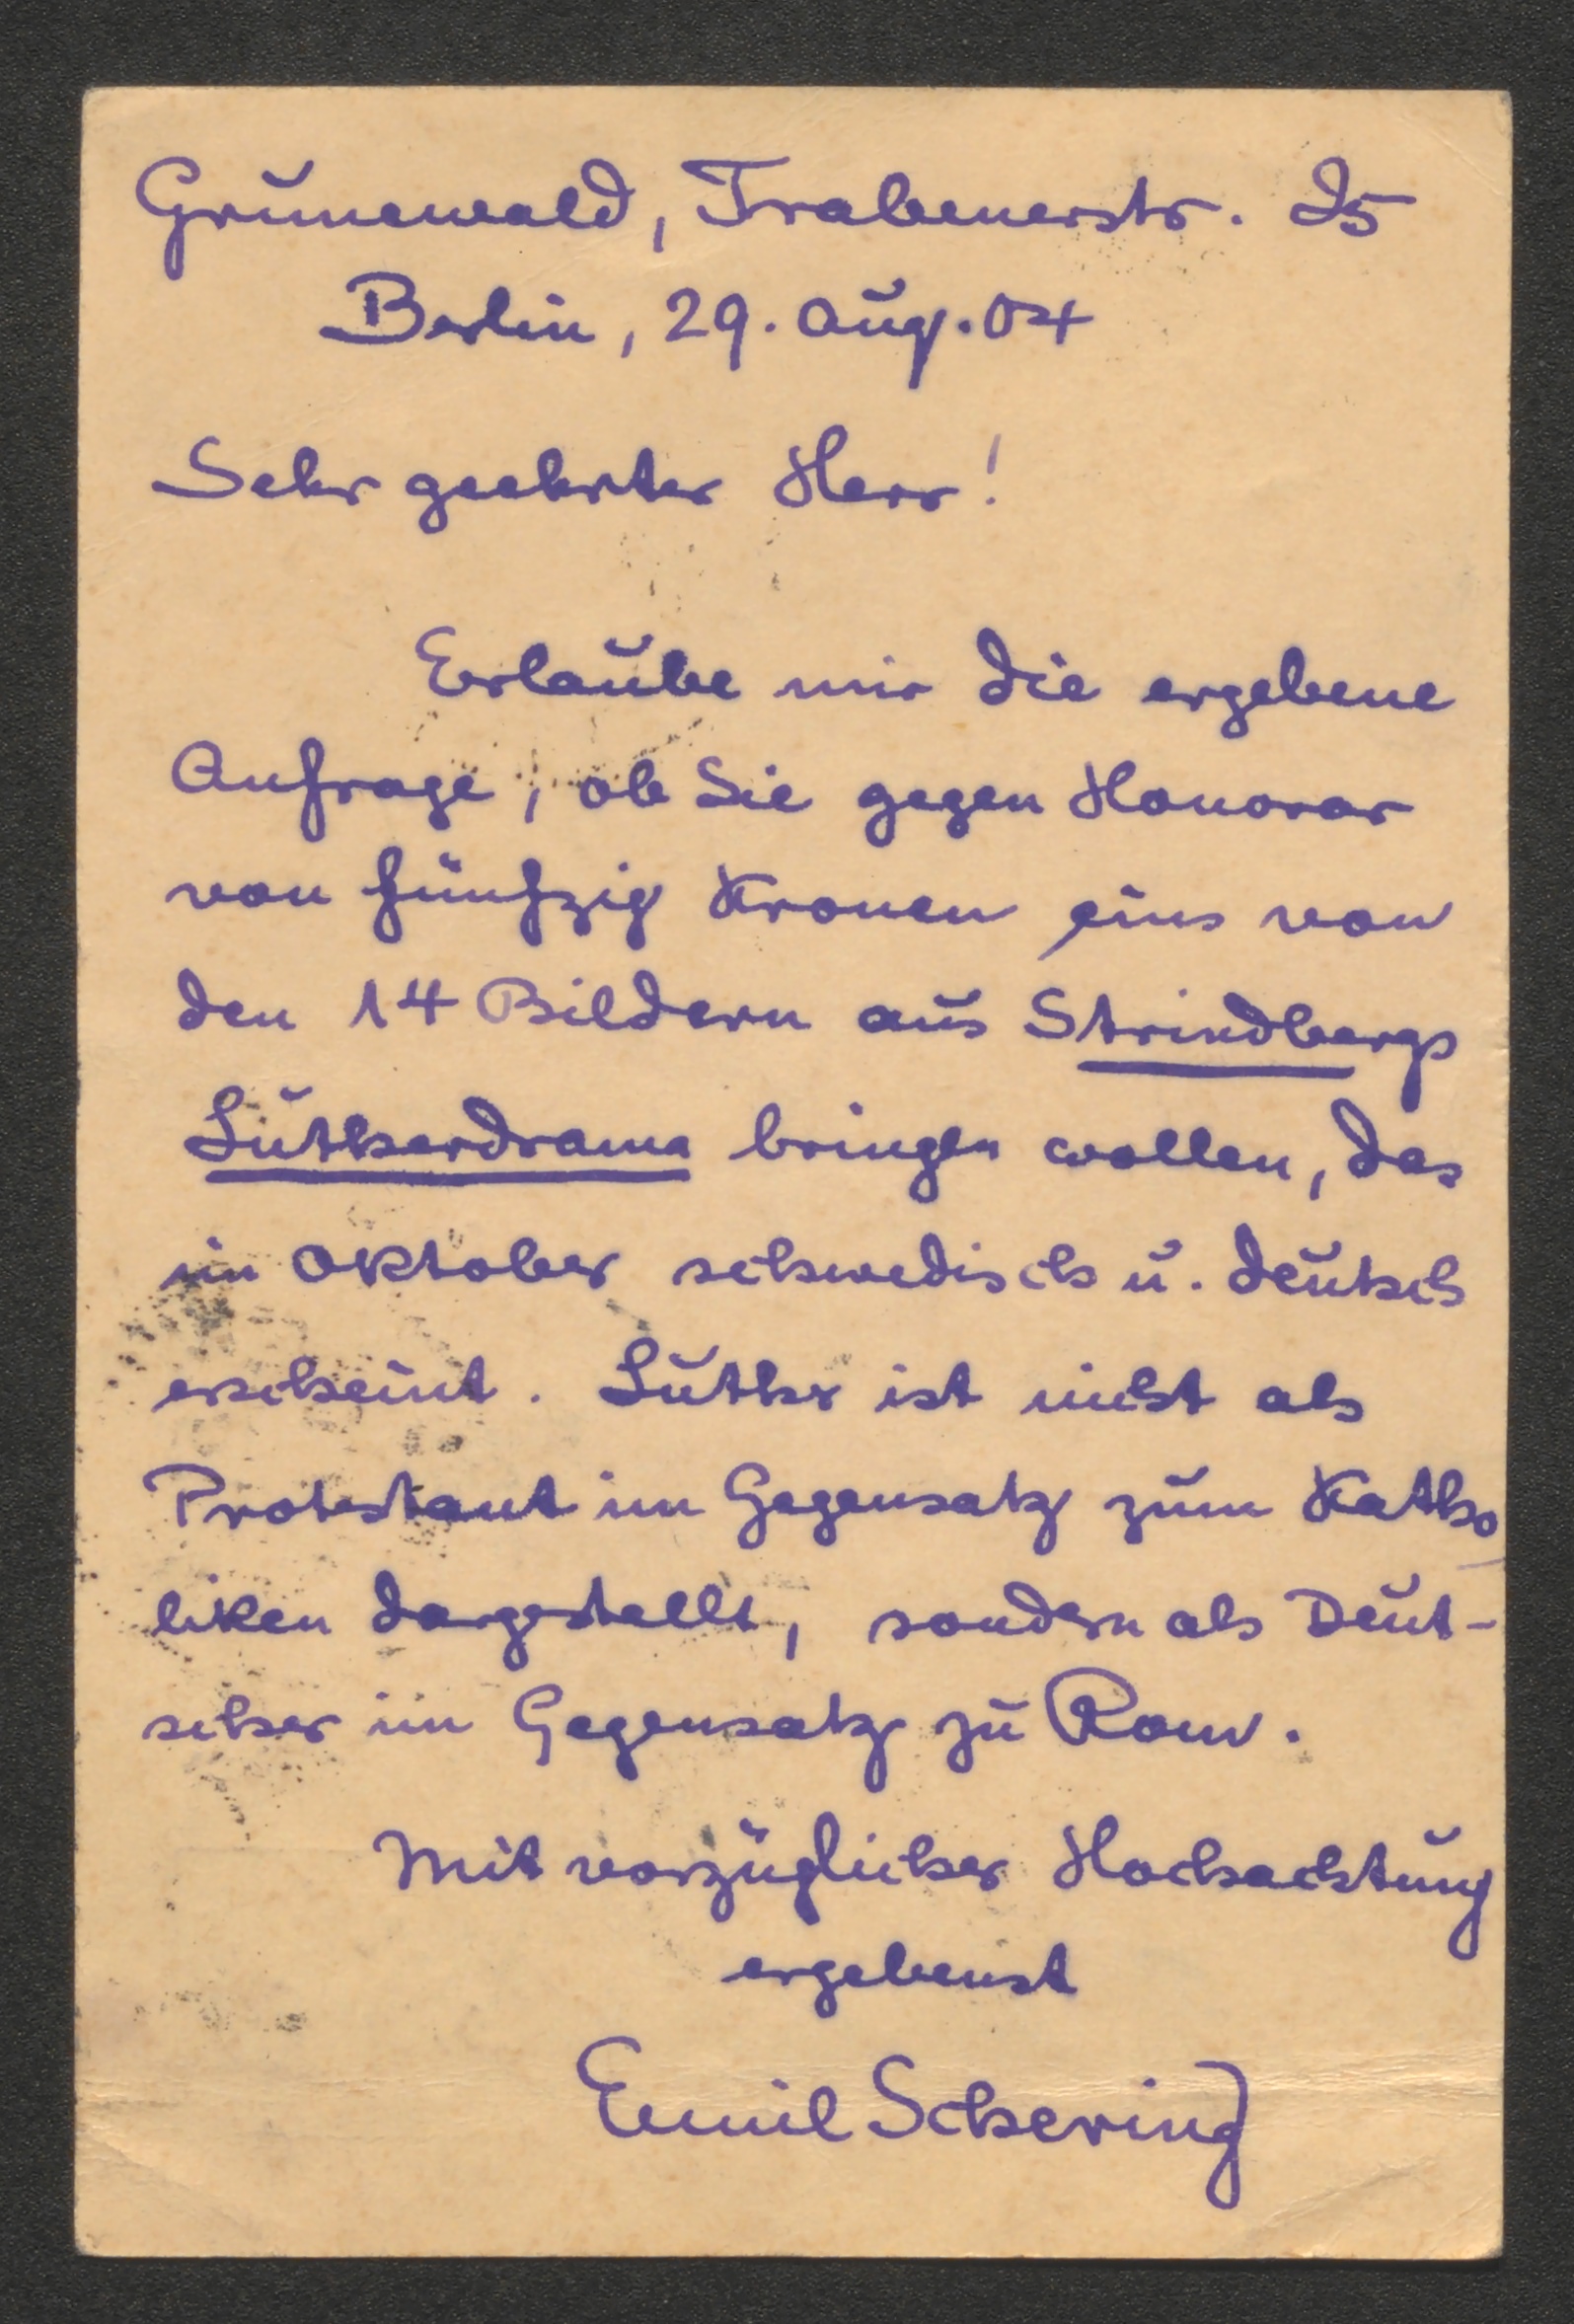 Grunewald, Trabenerstr. 25
Berlin, 29. Aug. 04
Sehr geehrter Herr!
Erlaube mir die ergebene
Anfrage, ob Sie gegen Honorar
von fünfzig Kronen eins von
den 14 Bildern aus Strindbergs
Lutherdrama bringen wollen, das
im Oktober schwedisch u. deutsch
erscheint. Luther ist nicht als
Protestant im Gegensatz zum Katho
liken dargestellt, sondern als Deut-
scher im Gegensatz zu Rom.
Mit vorzüglicher Hochachtung
ergebenst
Emil Schering